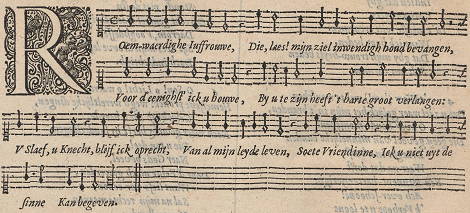 ROem-waerdighe Iuffrouwe, Die, laes! mijn ziel inwendigh houd bevangen,
Voor d'eenighst' ick u houwe, By u te zijn heeft 't harte groot verlangen:
V Slaef, u Knecht, blijf ick oprecht, Van al mijn leyde leven, Soete Vriendinne, Ick u niet uyt de
sinne Kan begeven.